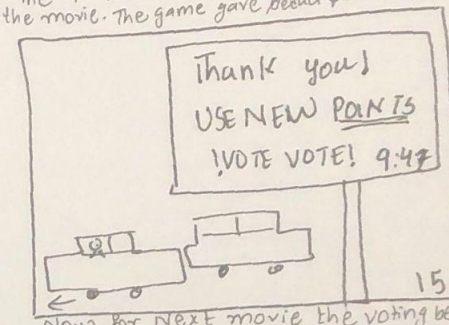 the movie. The game gave
Thank you!
USE NEW POINTS
!VOTE VOTE! 9:47
15
for Next movie the voting